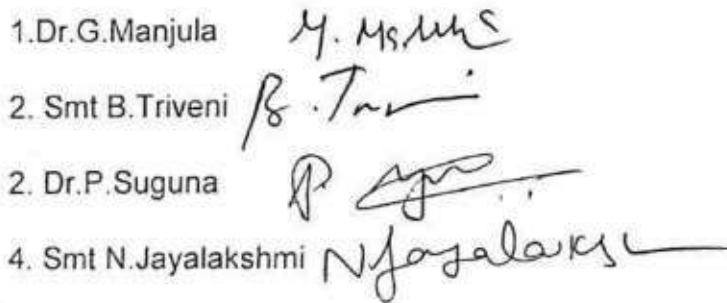 1.Dr.G.Manjula
2. Smt B.Triveni B.
2. Dr.P.Suguna P
4. Smt N.Jayalakshmi N Jayalaksh